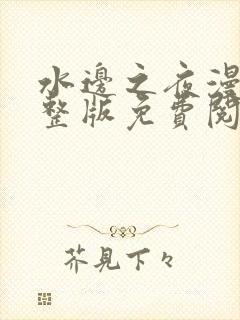 水邊之夜漫
整版免費閱
芥見下々